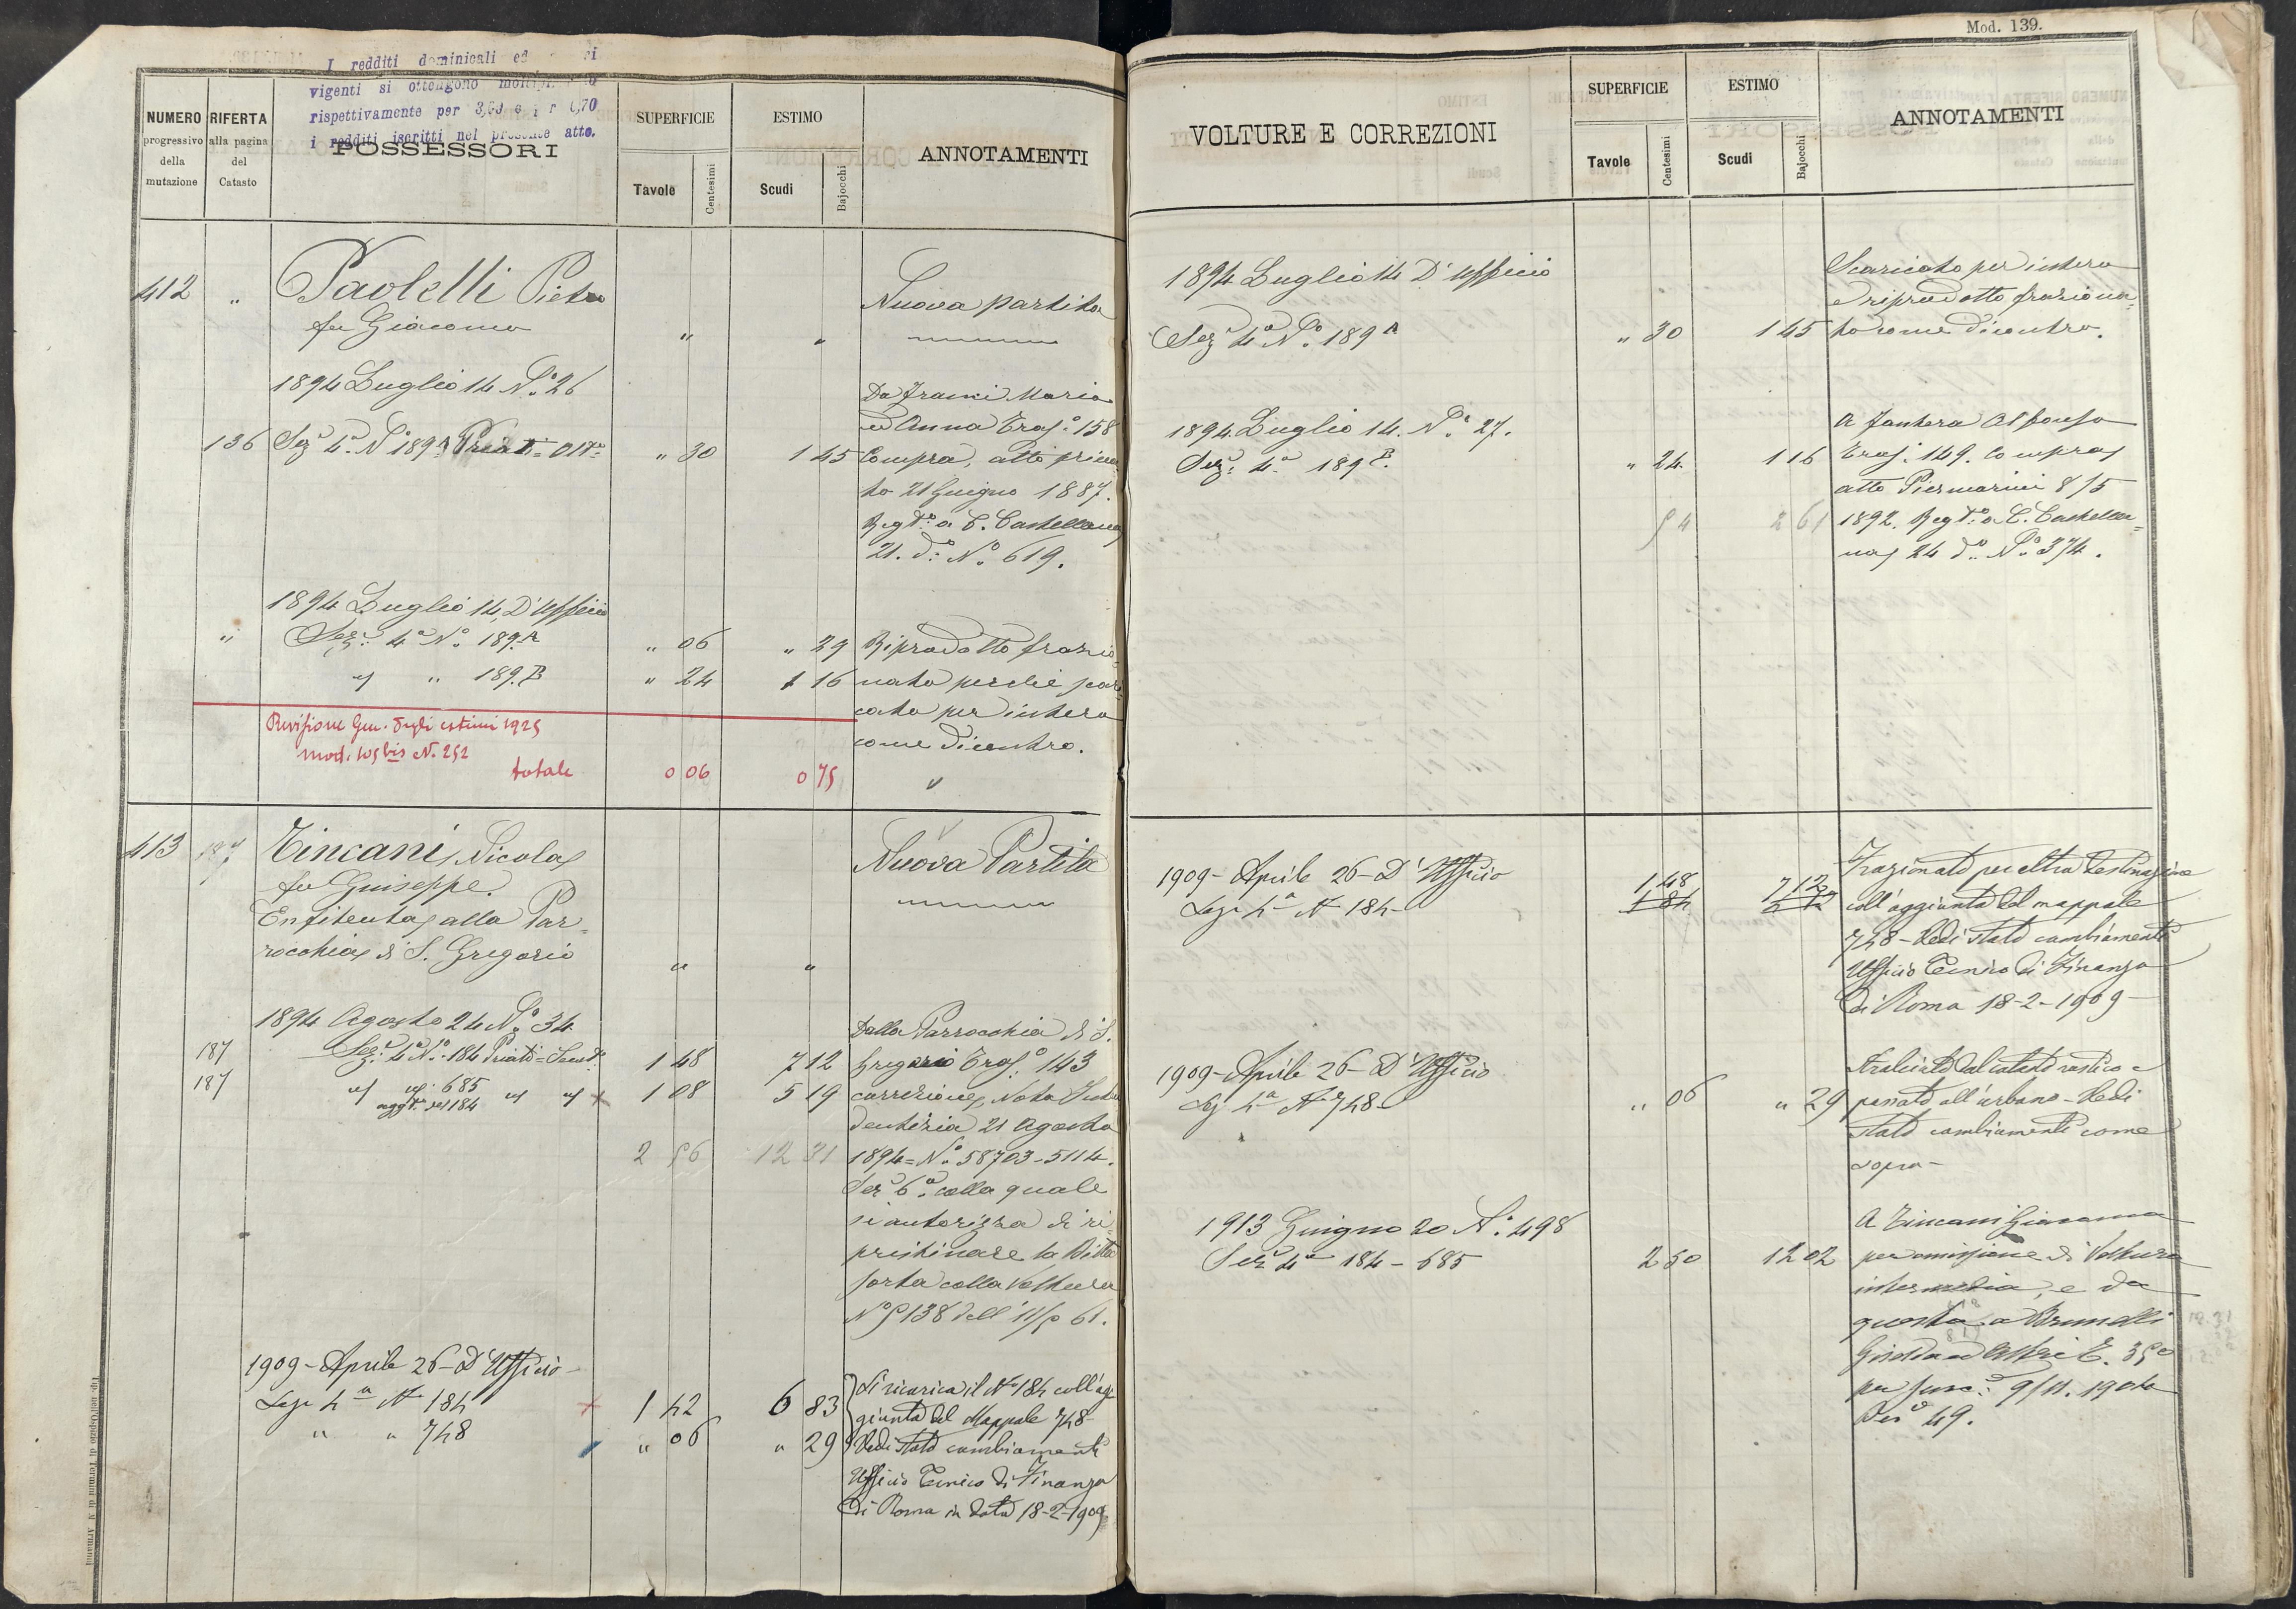 Mod. 139.
I redditi dominicali ed
vigenti si ottengono
rispettivamente per
i redditi iscritti nel presente atto.
NUMERO
progressivo
della
mutazione
RIFERTA
alla pagina
del
Catasto
POSSESSORI
SUPERFICIE
Tavole
Centesimi
ESTIMO
Scudi
Bajocchi
ANNOTAMENTI
412 " Paolelli Pietro
fu Giacomo " "
Nuova partita
1894 Luglio 14 N.° 26
136 Sez.e 4.a N.° 189 " 30 1 45
Da Franci Maria
ed Anna Tras.° 158
Compra, atto priva
to 21 Giugno 1887.
Reg.to a C. Castellana
21. d.° N.° 619.
1894 Luglio 14, D'Ufficio
" Sez.e 4.a N.° 189.A " 06 " 29
" " 189.B " 24 1 16
Riprodotto frazio=
nato perchè scari
cato per intero
come dicontro.
Revisione Gen. degli estimi 1925
mod. 105 bis N. 252
totale 0 06 0 75
413 187 Tincani Nicola
fu Guiseppe.
Enfiteuta alla Par=
rocchia di S. Gregorio " "
Nuova Partita
1894 Agosto 24 N.° 34
187 Sez.e 4.a N.° 184 1 48 7 12
187 " " 685 " " x 1 08 5 19
agg.to al 184
2 56 12 31
Dalla Parrocchia di S.
Gregorio Tras.° 143
correzione, Nota
21 Agosto
1894 = N.° 58703-5114.
Sez.e 6.a colla quale
si autorizza di ri
pristinare la Ditta
sorta colla Voltura
N.° 9138 dell'
1909 - Aprile 26 - D'Ufficio -
Sez. 4a N 184 x 1 42 6 83
" " 748 " 06 " 29
Si ricarica il N° 184 coll'ag
giunta del Mappale 748-
Vedi stato cambiamenti
Ufficio Tecnico di Finanza
di Roma in data 18-2-1909
Tip. dell'Ospizio di Termini di N. Armanni
VOLTURE E CORREZIONI
SUPERFICIE
Tavole
Centesimi
ESTIMO
Scudi
Bajocchi
ANNOTAMENTI
1894 Luglio 14 D'Ufficio
Sez.e 4.a N.° 189 A " 30 1 45
Scaricato per intero
e riprodotto fraziona=
to come dicontro.
1894 Luglio 14. N.° 27.
Sez.e 4.a 189 B. " 24 1 16
54 2 61
A Alfonso
Tras. 149. Compra
atto Piermarini 8/5
1892. Reg.to a C. Castella=
na 24 d.° N.° 374.
1909 - Aprile 26 - D'Ufficio
Sez. 4a N 184- 1 48 7 12
Frazionato per altra destinazione
coll'aggiunta del mappale
748 - Vedi stato cambiamenti
Ufficio Tecnico di Finanza
di Roma 18-2-1909-
1909 - Aprile 26 - D'Ufficio
Sez. 4a N° 748- " 06 " 29
Stralciato dal catasto rustico e
passato all'urbano - Vedi
stato cambiamenti come
sopra -
1913 Giugno 20 N.° 498
Sez.e 4a 184 - 685 2 50 12 02
A Tincani Giacomo
per omissione di Voltura
intermedia, e da
questa a Brunelli